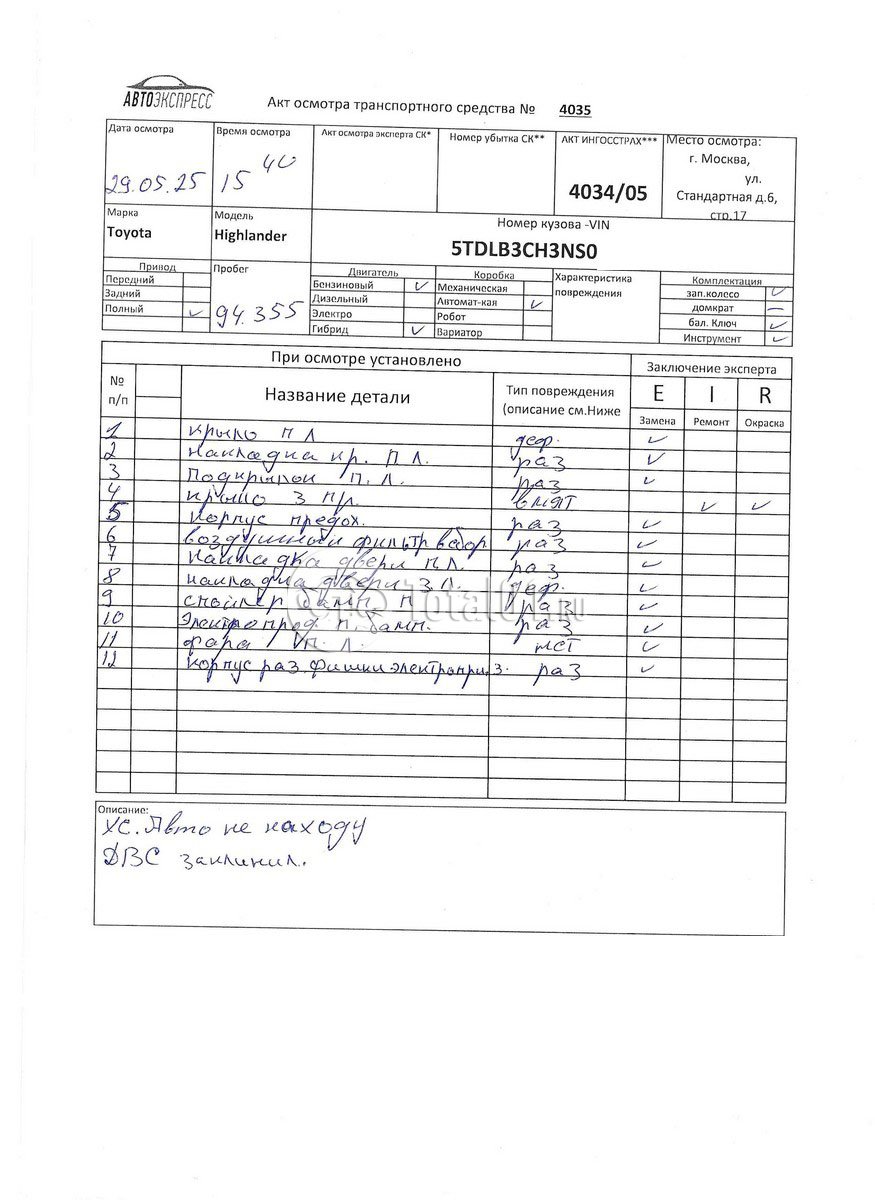 АВТОЭКСПРЕСС
Акт осмотра транспортного средства № 4035
Дата осмотра
29.05.25
Время осмотра
15 40
Акт осмотра эксперта СК*
Номер убытка СК**
АКТ ИНГОССТРАХ***
4034/05
Место осмотра:
г. Москва,
ул.
Стандартная д.6,
стр.17
Марка
Toyota
Модель
Highlander
Номер кузова -VIN
5TDLB3CH3NS0
Привод
Передний
Задний
Полный ✓
Пробег
94.355
Двигатель
Бензиновый ✓
Дизельный
Электро
Гибрид ✓
Коробка
Механическая
Автомат-кая ✓
Робот
Вариатор
Характеристика
повреждения
Комплектация
зап.колесо ✓
домкрат —
бал. Ключ ✓
Инструмент ✓
При осмотре установлено
Заключение эксперта
№
п/п
Название детали
Тип повреждения
(описание см.Ниже
E I R
Замена Ремонт Окраска
1 крыло П Л деф. ✓
2 Накладка кр. П.Л. раз ✓
3 Подкрылок П.Л. раз ✓
4 крыло З пр. вмят ✓ ✓
5 Корпус предох. раз ✓
6 воздушный фильтр в сбор раз ✓
7 Накладка двери П.Л. раз ✓
8 накладка двери З.Л. деф. ✓
9 спойлер бамп. П раз ✓
10 Электропров п. бамп. раз ✓
11 фара П. Л. ✓
12 Корпус раз фишки раз ✓
TotalCar.ru
Описание:
ХС. Авто не находу
ДВС заклинил.